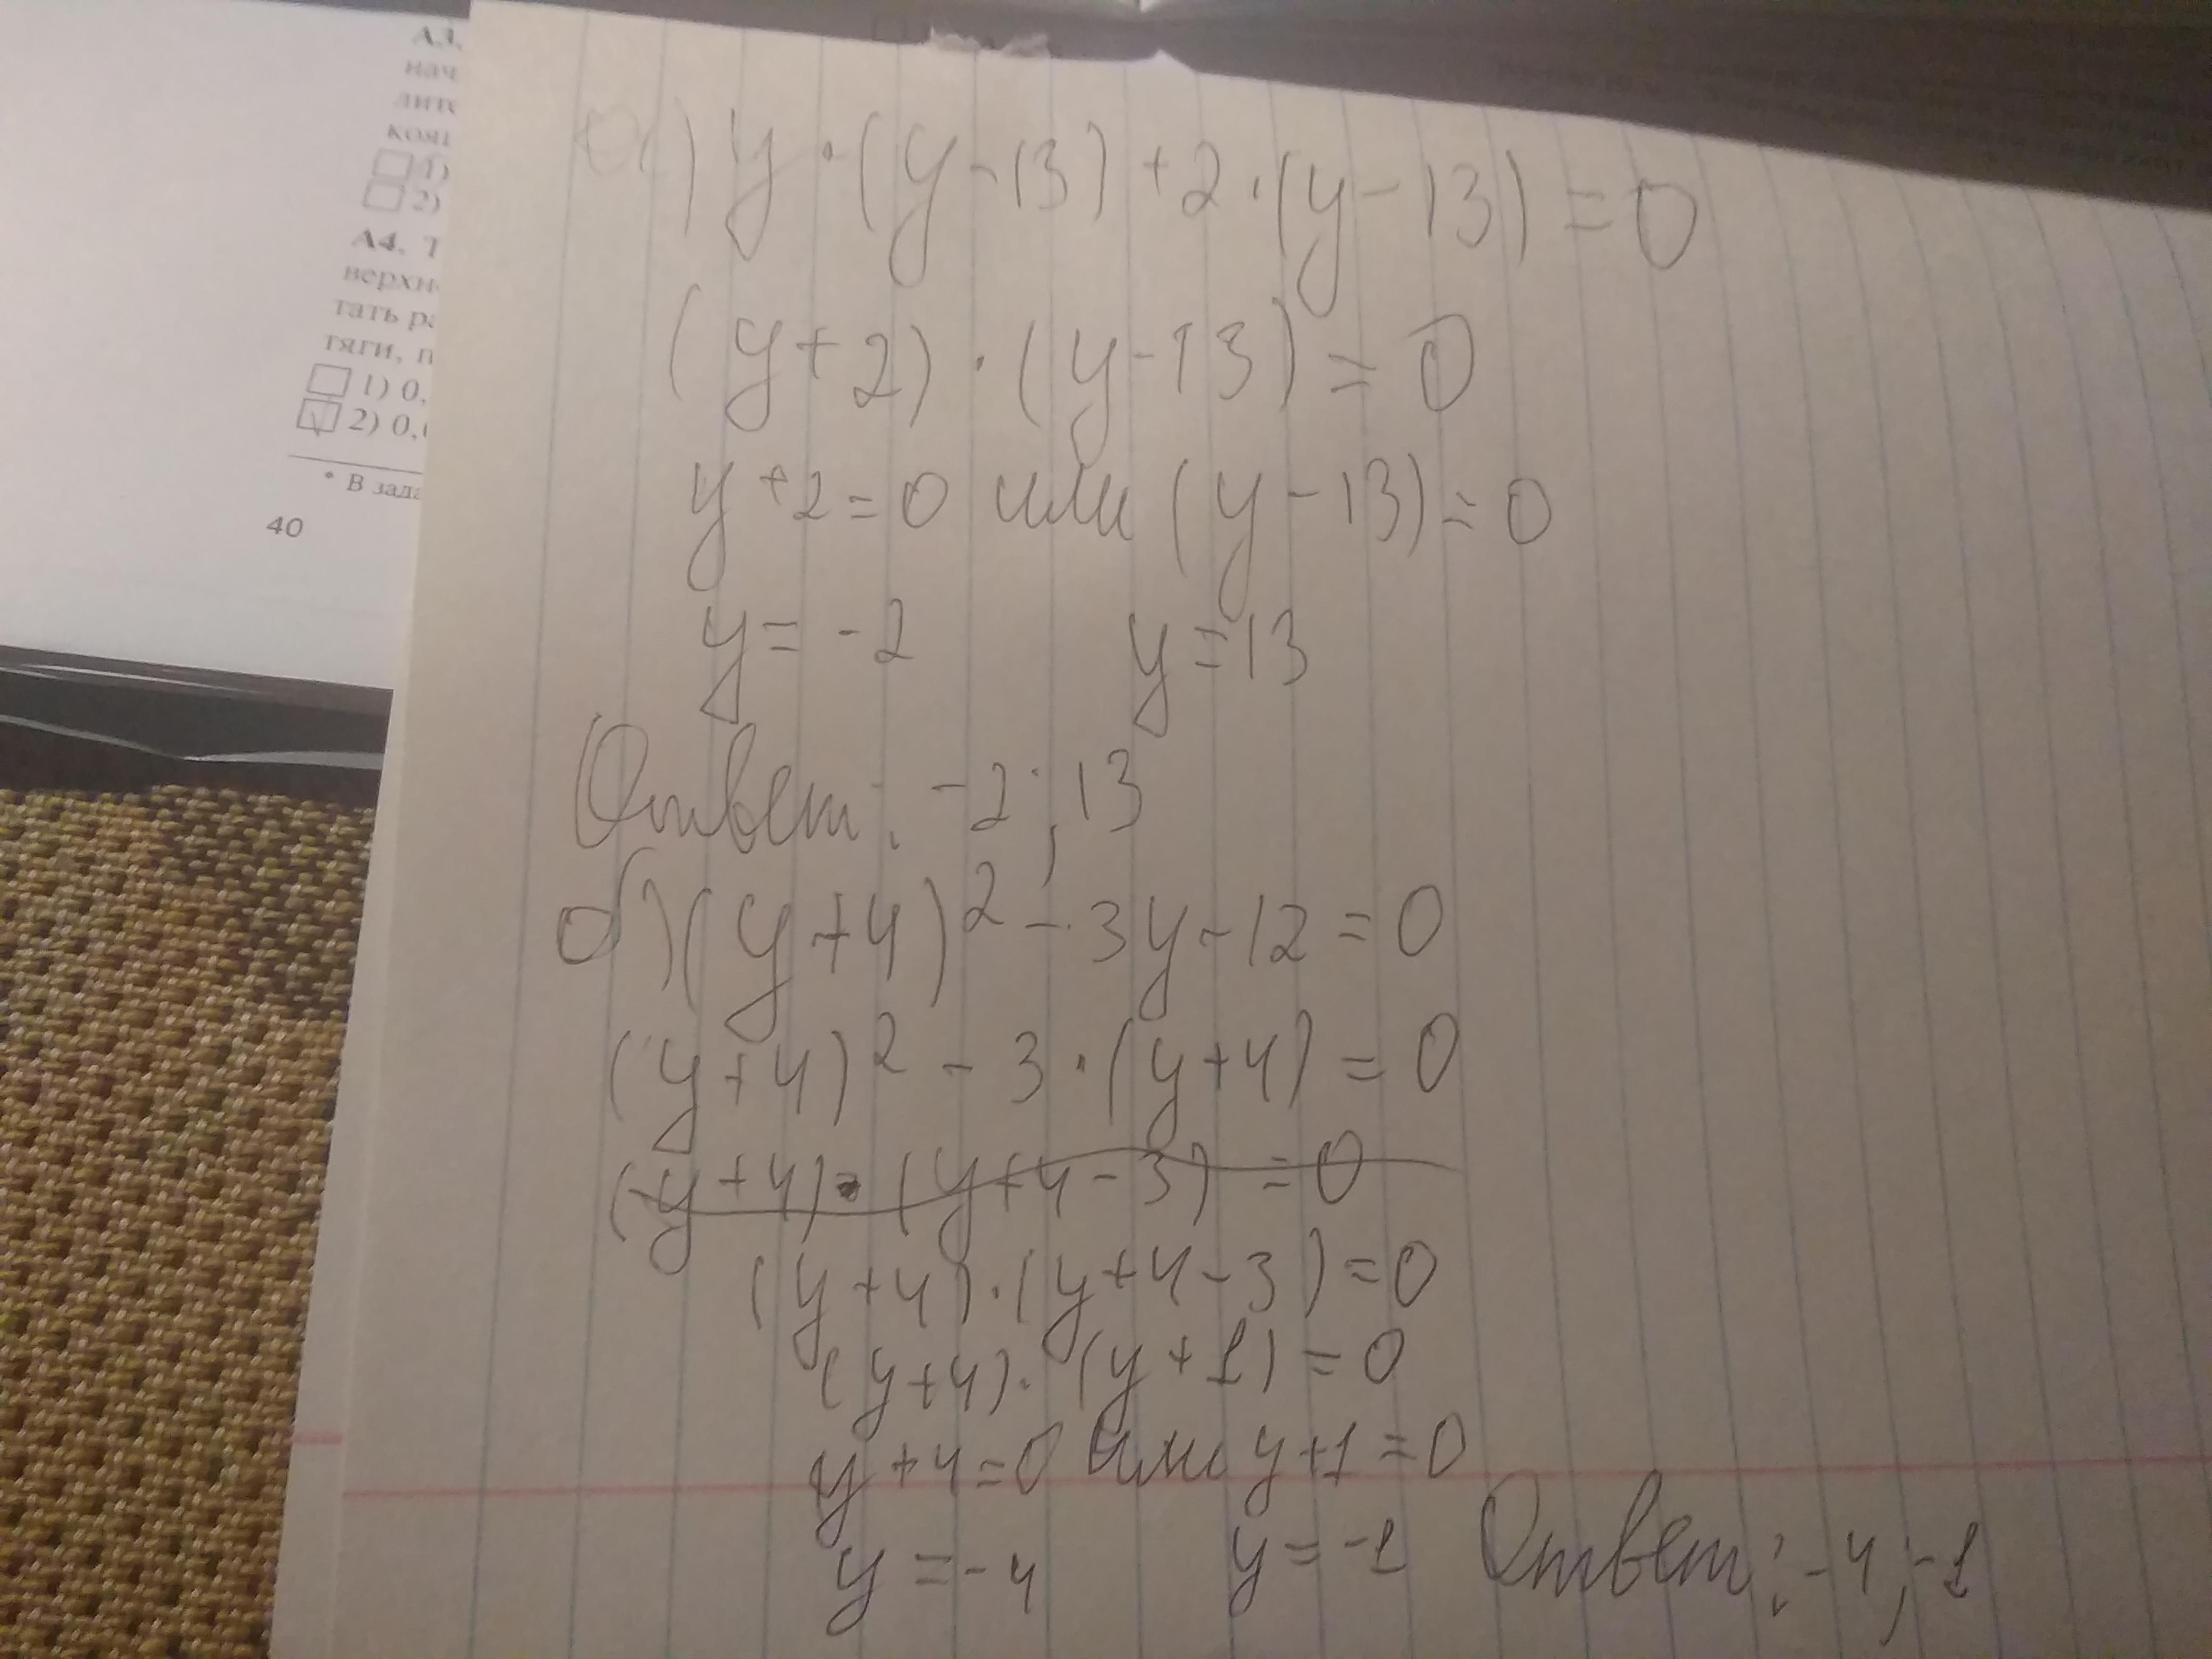 А3.
нач
лите
1)
2)
А4. Т
верхн
тать ра
тяги, п
1) 0,
2) 0,
* В зада
40
а) y · (y - 13) + 2 · (y - 13) = 0
(y + 2) · (y - 13) = 0
y + 2 = 0 или (y - 13) = 0
y = -2 y = 13
Ответ: -2; 13
б) (y + 4)² - 3y - 12 = 0
(y + 4)² - 3 · (y + 4) = 0
(y + 4) · (y + 4 - 3) = 0
(y + 4) · (y + 4 - 3) = 0
(y + 4) · (y + 1) = 0
y + 4 = 0 или y + 1 = 0
y = -4 y = -1 Ответ: -4; -1